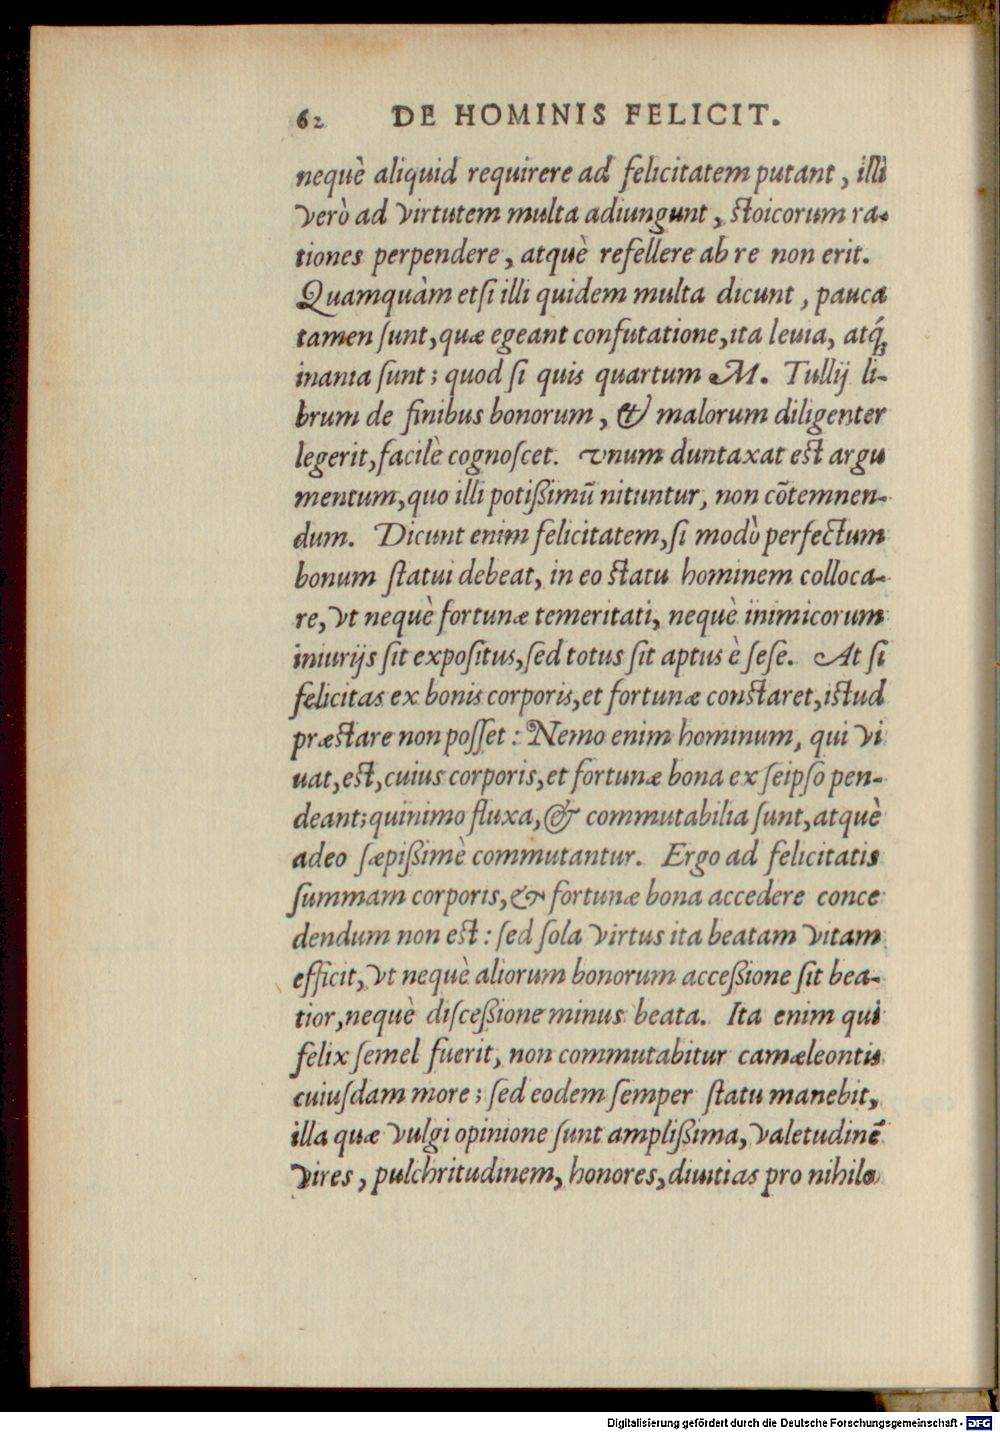 62 DE HOMINIS FELICIT.
nequè aliquid requirere ad felicitatem putant, illi
verò ad virtutem multa adiungunt, stoicorum ra-
tiones perpendere, atquè refellere ab re non erit.
Quamquàm etsi illi quidem multa dicunt, pauca
tamen sunt, quæ egeant confutatione, ita leuia, atq́;
inania sunt; quod si quis quartum M. Tullij li-
brum de finibus bonorum, & malorum diligenter
legerit, facilè cognoscet. vnum duntaxat est argu
mentum, quo illi potißimũ nituntur, non cõtemnen-
dum. Dicunt enim felicitatem, si modò perfectum
bonum statui debeat, in eo statu hominem colloca-
re, vt nequè fortunæ temeritati, nequè inimicorum
iniurijs sit expositus, sed totus sit aptus è sese. At si
felicitas ex bonis corporis, et fortunæ constaret, istud
præstare non posset: Nemo enim hominum, qui vi
uat, est, cuius corporis, et fortunæ bona ex seipso pen-
deant; quinimo fluxa, & commutabilia sunt, atquè
adeo sæpißimè commutantur. Ergo ad felicitatis
summam corporis, & fortunæ bona accedere conce
dendum non est: sed sola virtus ita beatam vitam
efficit, vt nequè aliorum bonorum acceßione sit bea-
tior, nequè disceßione minus beata. Ita enim qui
felix semel fuerit, non commutabitur camæleontis
cuiusdam more; sed eodem semper statu manebit,
illa quæ vulgi opinione sunt amplißima, valetudinẽ
vires, pulchritudinem, honores, diuitias pro nihilo
Digitalisierung gefördert durch die Deutsche Forschungsgemeinschaft - DFG